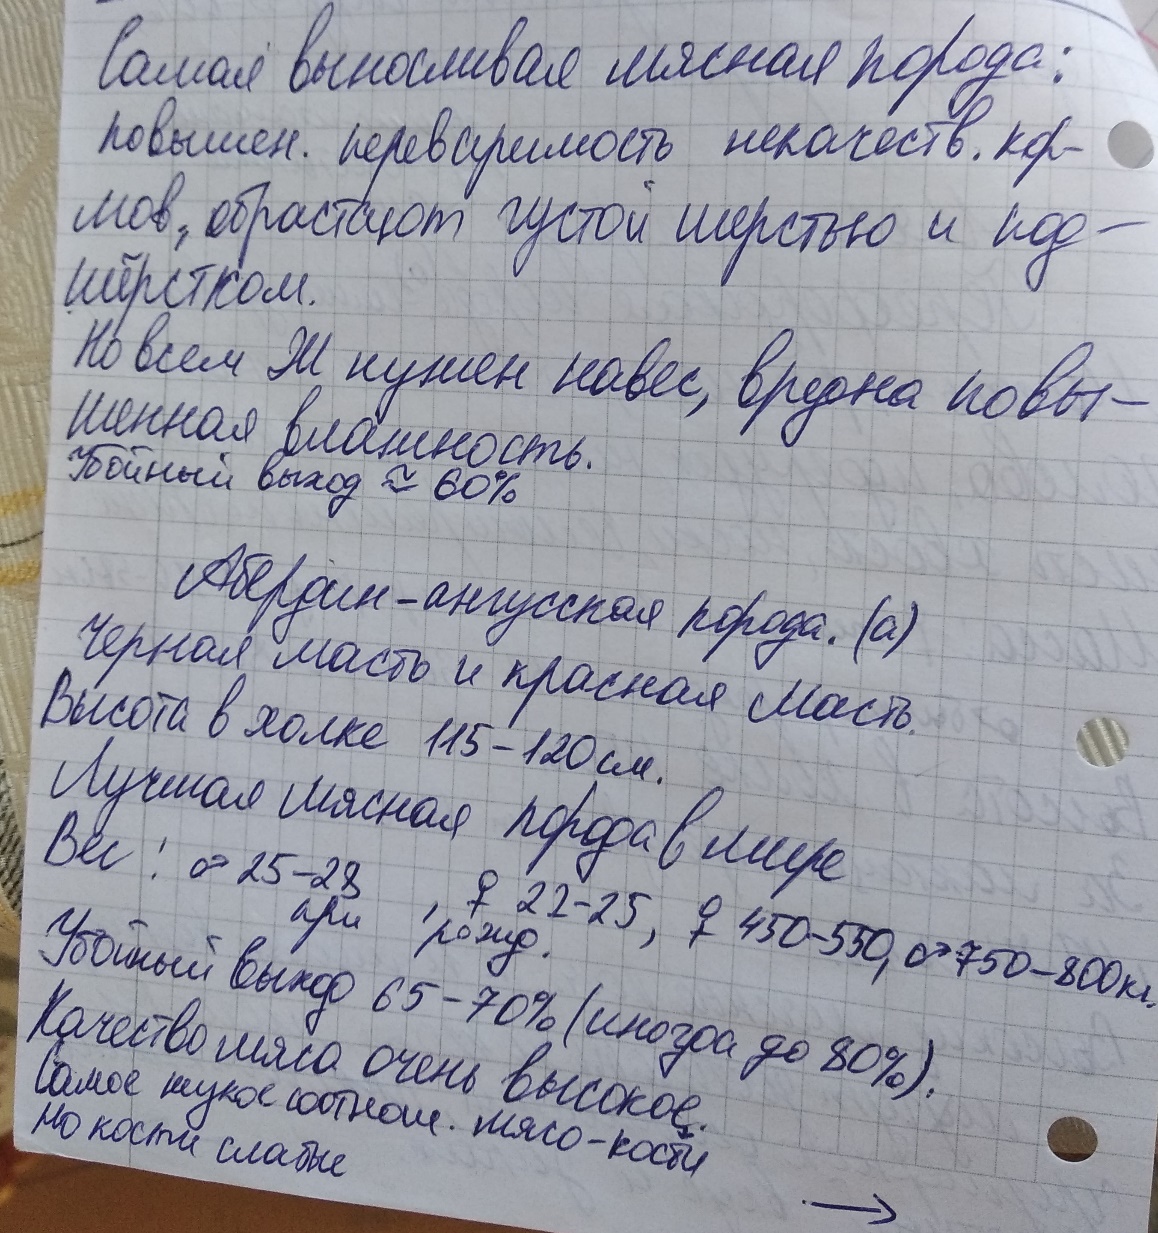 Самая выносливая мясная порода:
повышен. переваримость некачеств. кор-
мов, обрастают густой шерстью и под-
шёрстком.
Но всем Ж нужен навес, вредна повы-
шенная влажность.
Убойный выход ≈ 60%
Абердин-ангусская порода. (а)
Черная масть и красная масть.
Высота в холке 115-120см.
Лучшая мясная порода в мире
Вес: ♂ 25-28, ♀ 22-25, ♀ 450-550, ♂ 750-800кг.
при рожд.
Убойный выход 65-70% (иногда до 80%).
Качество мяса очень высокое.
Самое соотнош. мясо-кости
Но кости слабые
→